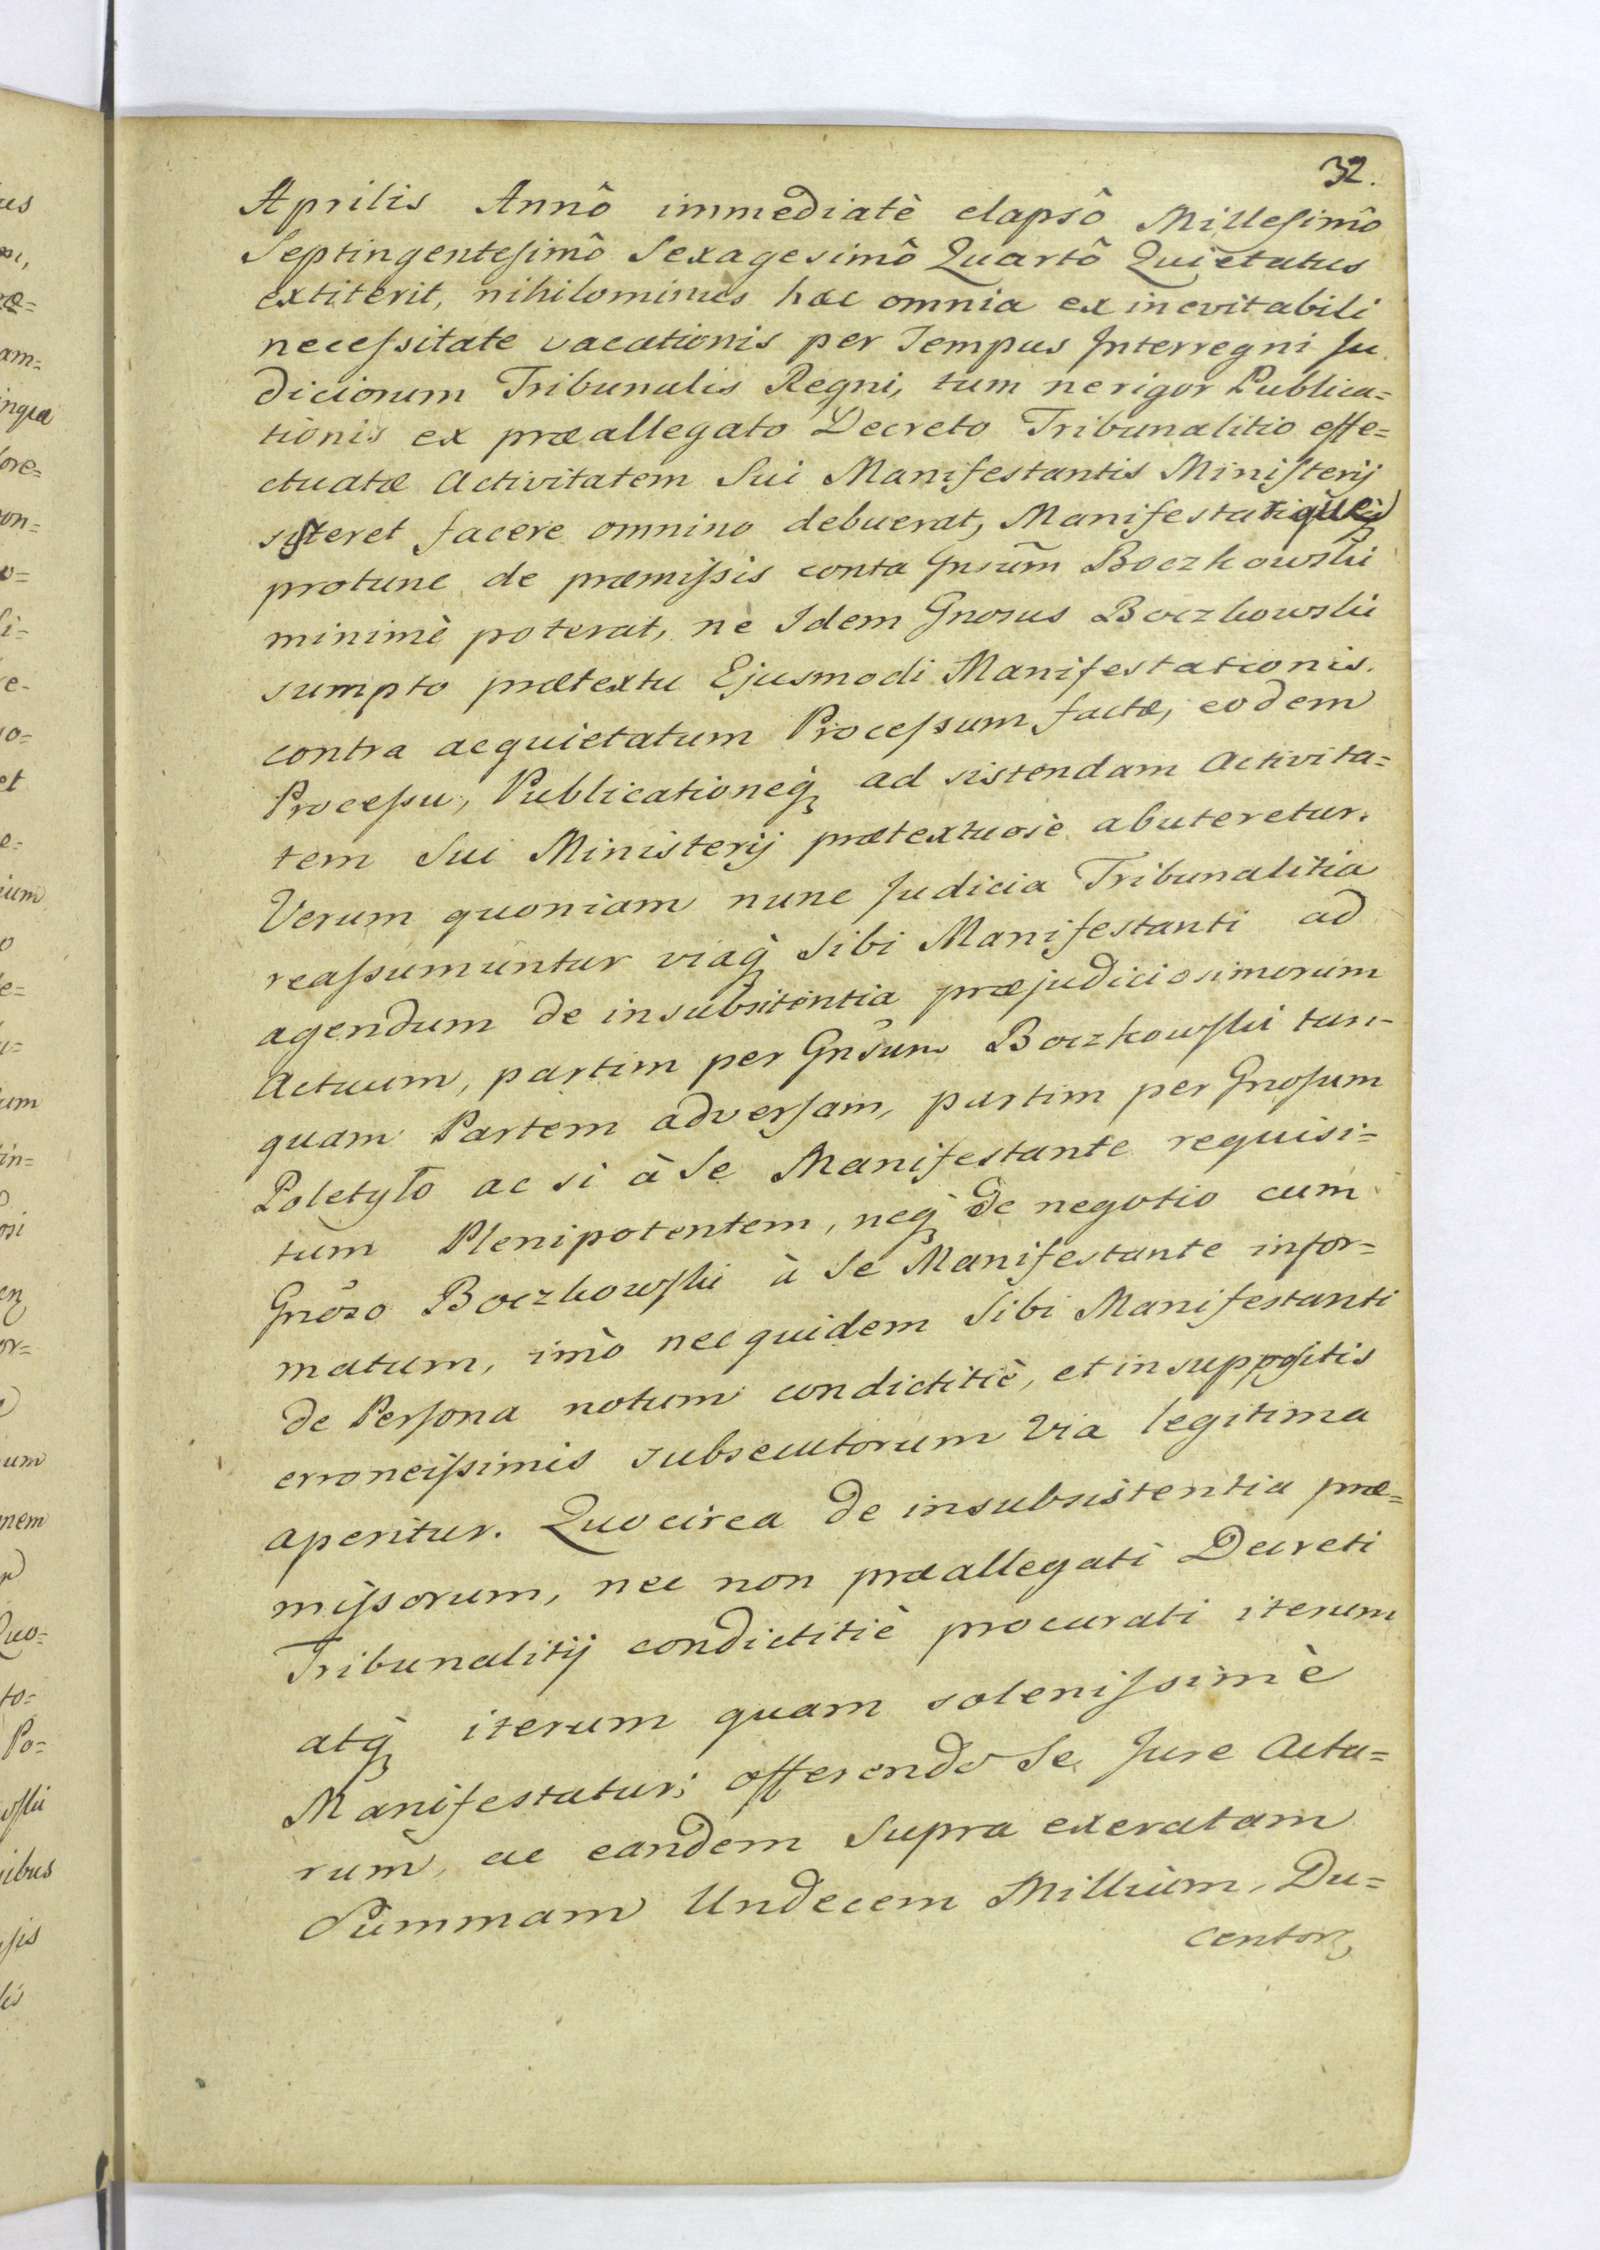 32.
Aprilis Annô immediatè elapsô Millesimô
Septingentesimô Sexagesimô Quartô Quietatus
extiterit, nihilominus hæc omnia ex inevitabili
necessitate vacationis per Tempus Interregni Ju
diciorum Tribunalis Regni, tum ne rigor Publica=
tionis ex præallegato Decreto Tribunalitio effe=
ctuatæ Activitatem Sui Manifestantis Ministerij
sisteret facere omnino debuerat, Manifestarique
protunc de præmissis conta Gnsūm Boczkowski
minimè poterat, nè Idem Gnosus Boczkowski
sumpto prætextu Ejusmodi Manifestationis
contra acquietatum Processum factæ, eodem
Processu, Publicationeq̀ ad sistendam Activita=
tem Sui Ministerij prætextuosè abuteretur.
Verum quoniam nunc Judicia Tribunalitia
reassumuntur viaq̀ Sibi Manifestanti ad
agendum de insubsitentia præjudiciosimorum
Actuum, partim per Gnsum Boczkowski tan-
quam Partem adversam, partim per Gnosum
Poletyło ac si à Se Manifestante requisi=
tum Plenipotentem, neq̀ de negotio cum
Gnoso Boczkowski à Se Manifestante infor=
matum, imò nec quidem Sibi Manifestanti
de Persona notum condictitiè, et in suppositis
erroneissimis subsecutorum via legitima
aperitur. Quocirca de insubsistentia præ=
missorum, nec non præallegati Decreti
Tribunalitij condictitiè procurati iterum
atq̀ iterum quam solenissimè
Manifestatur; offerendo Se Jure Actu=
rum, ac eandem Supra exeratam
Summam Undecem Millium, Du=
centorȝ